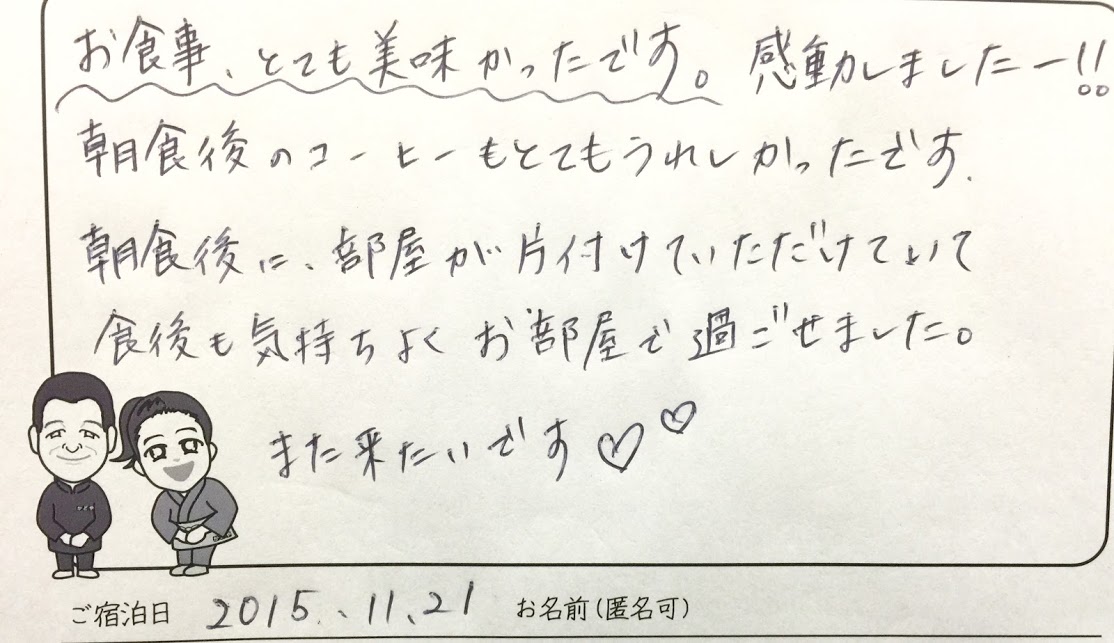 お食事、とても美味かったです。感動しましたー!!
朝食後のコーヒーもとてもうれしかったです.
朝食後に、部屋が片付けていただけていて
食後も気持ちよくお部屋で過ごせました。
また来たいです♡♡
ご宿泊日 2015.11.21 お名前(匿名可)